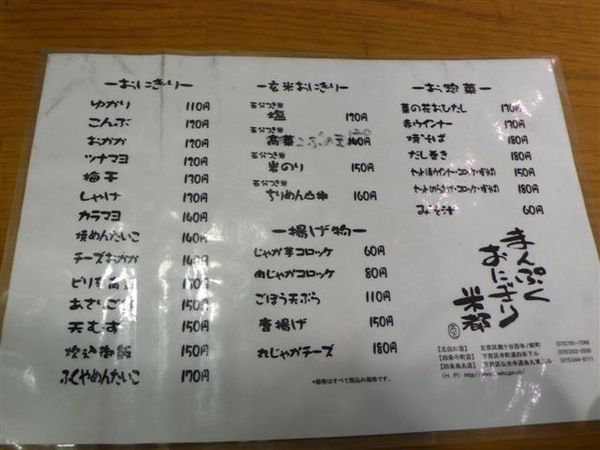 ーおにぎりー
ゆかり 110円
こんぶ 120円
おかか 120円
ツナマヨ 120円
梅干 120円
しゃけ 120円
カラマヨ 140円
焼めんたいこ 140円
チーズおかか 140円
ピリ辛高菜
あさ 150円
天むす 150円
炊込御飯 150円
ふくやめんたいこ 170円
ー玄米おにぎりー
五分つき米
塩 120円
五分つき米
高菜こぶの玉
五分つき米
岩のり 150円
五分つき米
ちりめん山椒 160円
ー揚げ物ー
じゃが芋コロッケ 60円
肉じゃがコロッケ 80円
ごぼう天ぷら 110円
唐揚げ 150円
丸じゃがチーズ 180円
*価格はすべて税込み価格です。
ーお惣菜ー
菜の花おひたし 170円
赤ウインナー 170円
焼そば 180円
だし巻き 180円
150円
150円
みそ汁 60円
まんぷく
おにぎり
米都
【北白川店】
【四条寺町店】 下京区寺町通四条下ル
【四条烏丸店】 下京区仏光寺通烏丸東入ル